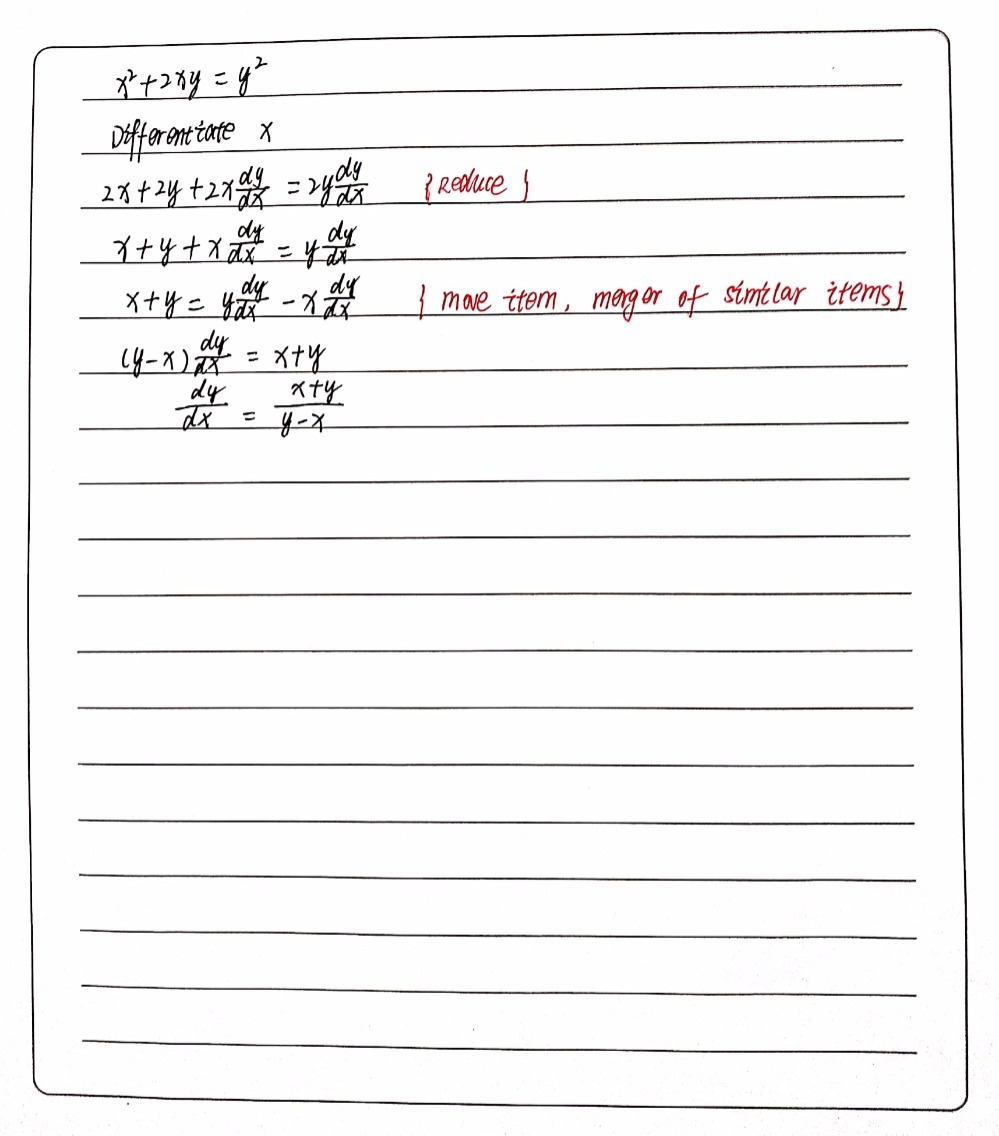 x² + 2xy = y²
Differentiate x
2x + 2y + 2x dy/dx = 2y dy/dx {Reduce}
x + y + x dy/dx = y dy/dx
x + y = y dy/dx - x dy/dx {move item, merger of similar items}
(y - x) dy/dx = x + y
dy/dx = x + y / y - x